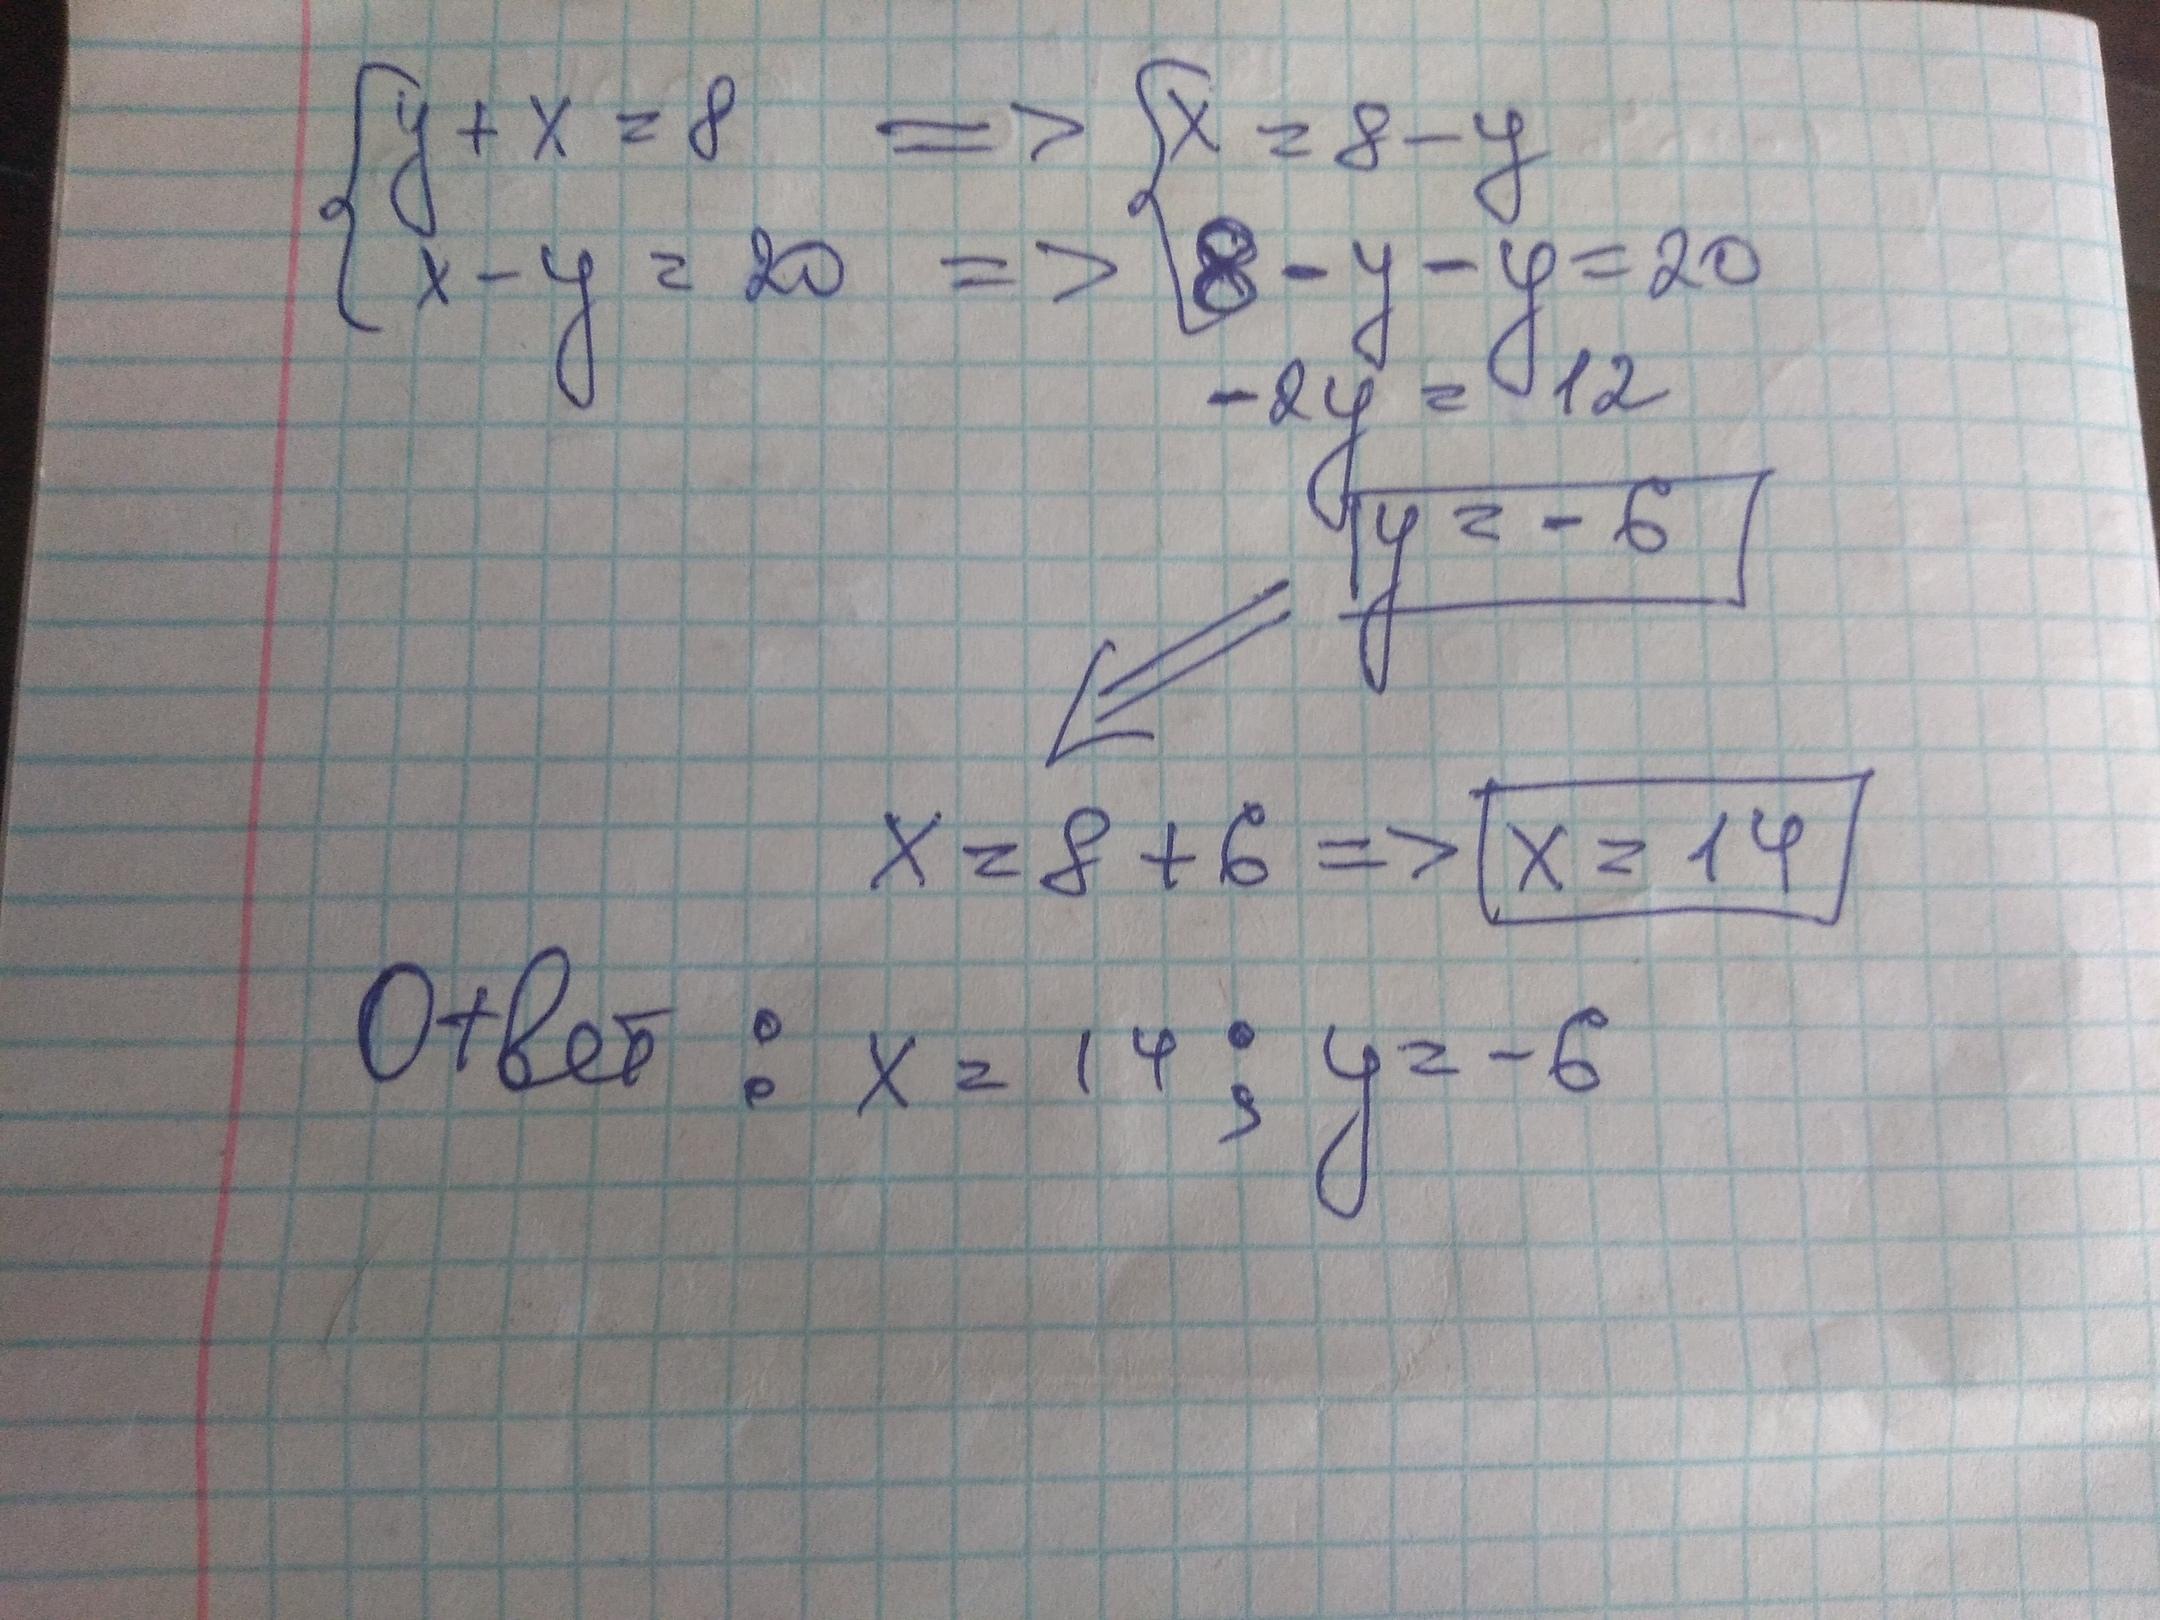 y + x = 8 => x = 8 - y
x - y = 20 => 8 - y - y = 20
-2y = 12
y = -6
x = 8 + 6 => x = 14
Ответ : x = 14 ; y = -6